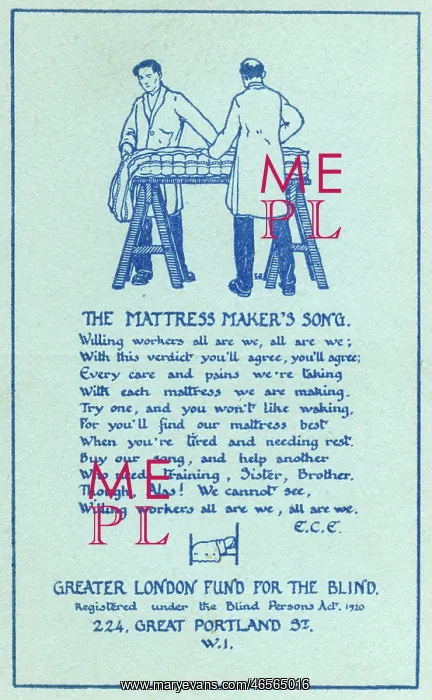 ME
PL
THE MATTRESS MAKER'S SONG.
Willing workers all are we, all are we;
With this verdict you'll agree, you'll agree;
Every care and pains we're taking
With each mattress we are making.
Try one, and you won't like waking,
For you'll find our mattress best
When you're tired and needing rest.
Buy our song, and help another
Who needs training, Sister, Brother.
Though, Alas! We cannot see,
Willing workers all are we, all are we.
E.C.E.
ME
PL
GREATER LONDON FUND FOR THE BLIND.
Registered under the Blind Persons Act. 1920
224, GREAT PORTLAND ST.
W.1.
www.maryevans.com/46565016